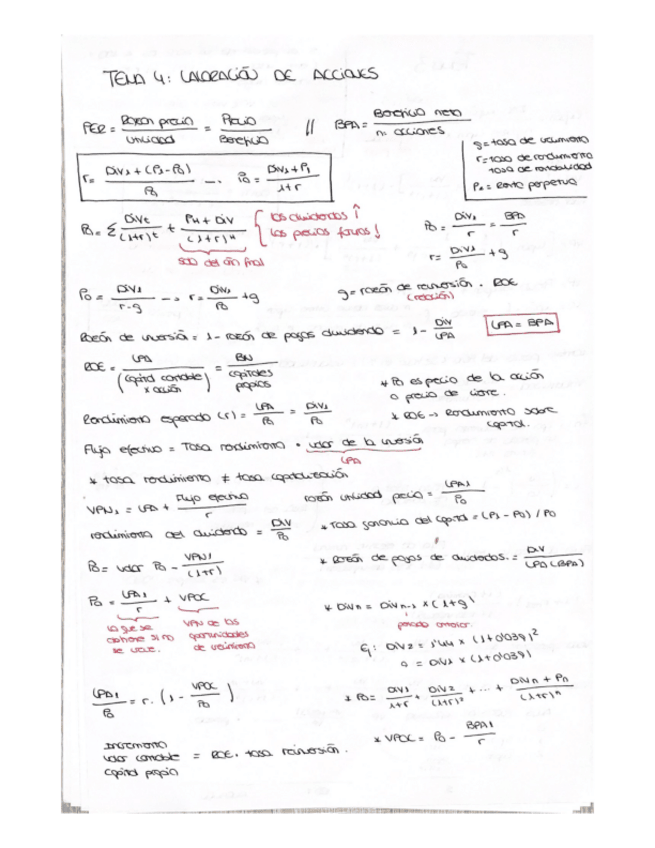 TEMA 4: VALORACIÓN DE ACCIONES
PER = Razón precio / Utilidad = Precio / Beneficio // BPA = Beneficio neto / nº acciones
g = tasa de crecimiento
r = tasa de rendimiento
tasa de rentabilidad
P₀ = Renta perpetua
r = DIV₁ + (P₁ - P₀) / P₀ --> P₀ = DIV₁ + P₁ / 1 + r
P₀ = Σ DIVt / (1+r)^t + PH + DIV / (1+r)^H { los dividendos ↑ los precios futuros ↓
Solo del año final
P₀ = DIV₁ / r = BPA / r
r = DIV₁ / P₀ + g
P₀ = DIV₁ / r - g --> r = DIV₁ / P₀ + g
g = razón de reinversión · ROE
(relación)
Razón de inversión = 1 - razón de pagos dividendo = 1 - DIV / UPA
UPA = BPA
ROE = UPA / (capital contable x acción) = BN / capitales propios
* P₀ es precio de la acción
o precio de cierre.
* ROE → Rendimiento sobre
capital.
Rendimiento esperado (r) = UPA / P₀ = DIV₁ / P₀
Flujo efectivo = Tasa rendimiento · valor de la inversión
UPA
* tasa rendimiento ≠ tasa capitalización
VPN₁ = UPA + Flujo efectivo / r
razón utilidad precio = UPA₁ / P₀
rendimiento del dividendo = DIV / P₀
* Tasa ganancia del capital = (P₁ - P₀) / P₀
P₀ = valor P₀ - VPN₁ / (1+r)
* Razón de pagos de dividendos. = DIV / UPA (BPA)
P₀ = UPA₁ / r + VPOC
lo que se
obtiene si no
se crece.
VPN de las
oportunidades
de crecimiento
* DIVn = DIVn-1 x (1+g)
periodo anterior.
Ej: DIV2 = 1'44 x (1+0'039)²
o = DIV1 x (1+0'039)
UPA₁ / P₀ = r · (1 - VPOC / P₀)
* P₀ = DIV1 / 1+r + DIV2 / (1+r)² + ... + DIVn + Pn / (1+r)^n
* VPOC = P₀ - BPA1 / r
Incremento
valor contable = ROE · tasa reinversión.
capital propio